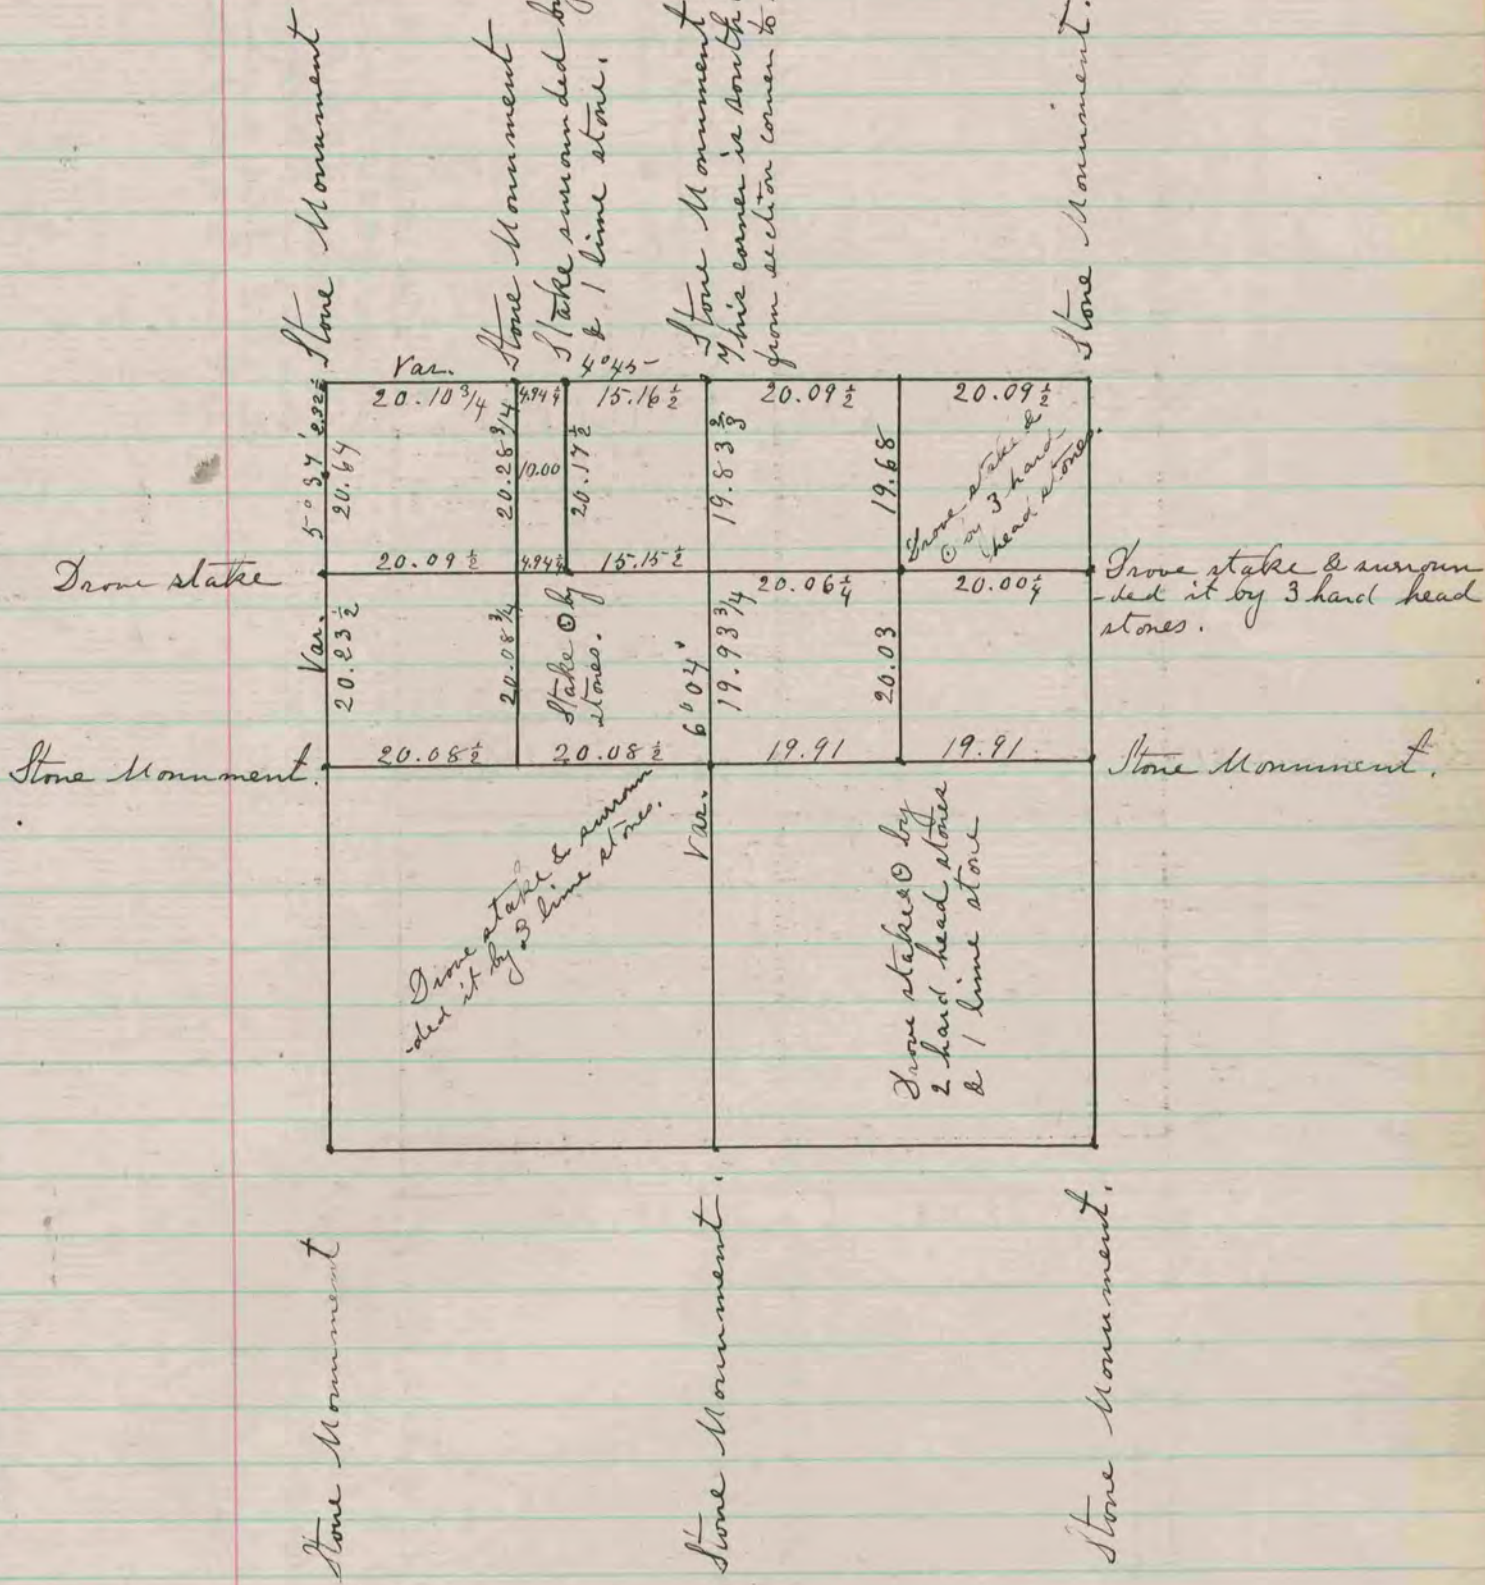 Stone Monument
Stone Monument
Stake surrounded by
& 1 lime stone.
Stone Monument
This corner is south
from section corner to
Stone Monument.
Var. 4°45-
20.10 3/4
4.94 1/4
15.16 1/2
20.09 1/2
20.09 1/2
5°37'
20.64
20.28 3/4
10.00
20.17 1/2
19.83 2/3
19.68
Drove stake &
⊙ by 3 hard
head stones.
Drove stake
20.09 1/2
4.94 1/4
15.15 1/2
20.06 1/4
20.00 1/4
Drove stake & surroun
-ded it by 3 hard head
stones.
Var.
20.23 1/2
20.08 3/4
Stake ⊙ by
stones.
6°04'
19.93 3/4
20.03
Stone Monument.
20.08 1/2
20.08 1/2
19.91
19.91
Stone Monument.
Drove stake & surroun
-ded it by 3 lime stones.
Var.
Drove stake & ⊙ by
2 hard head stones
& 1 lime stone
Stone Monument
Stone Monument.
Stone Monument.